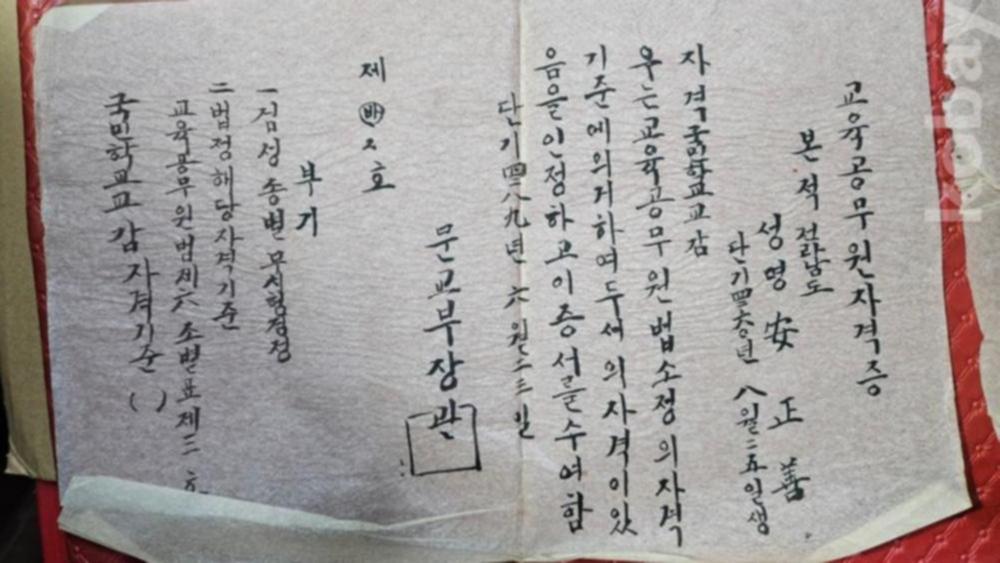 교육공무원자격증
본적 전라남도
성명 安正善
단기四六년 八월二五일생
자격 국민학교교감
우는교육공무원법소정의자격
기준에의거하여두서의자격이있
음을인정하고이증서를수여함
단기四二八九년 六월二三일
문교부장관
제 바 호
부기
一검정종별 무시험검정
二법정해당자격기준
교육공무원법제六조별표제三호
국민학교교감자격기준( )
kobay